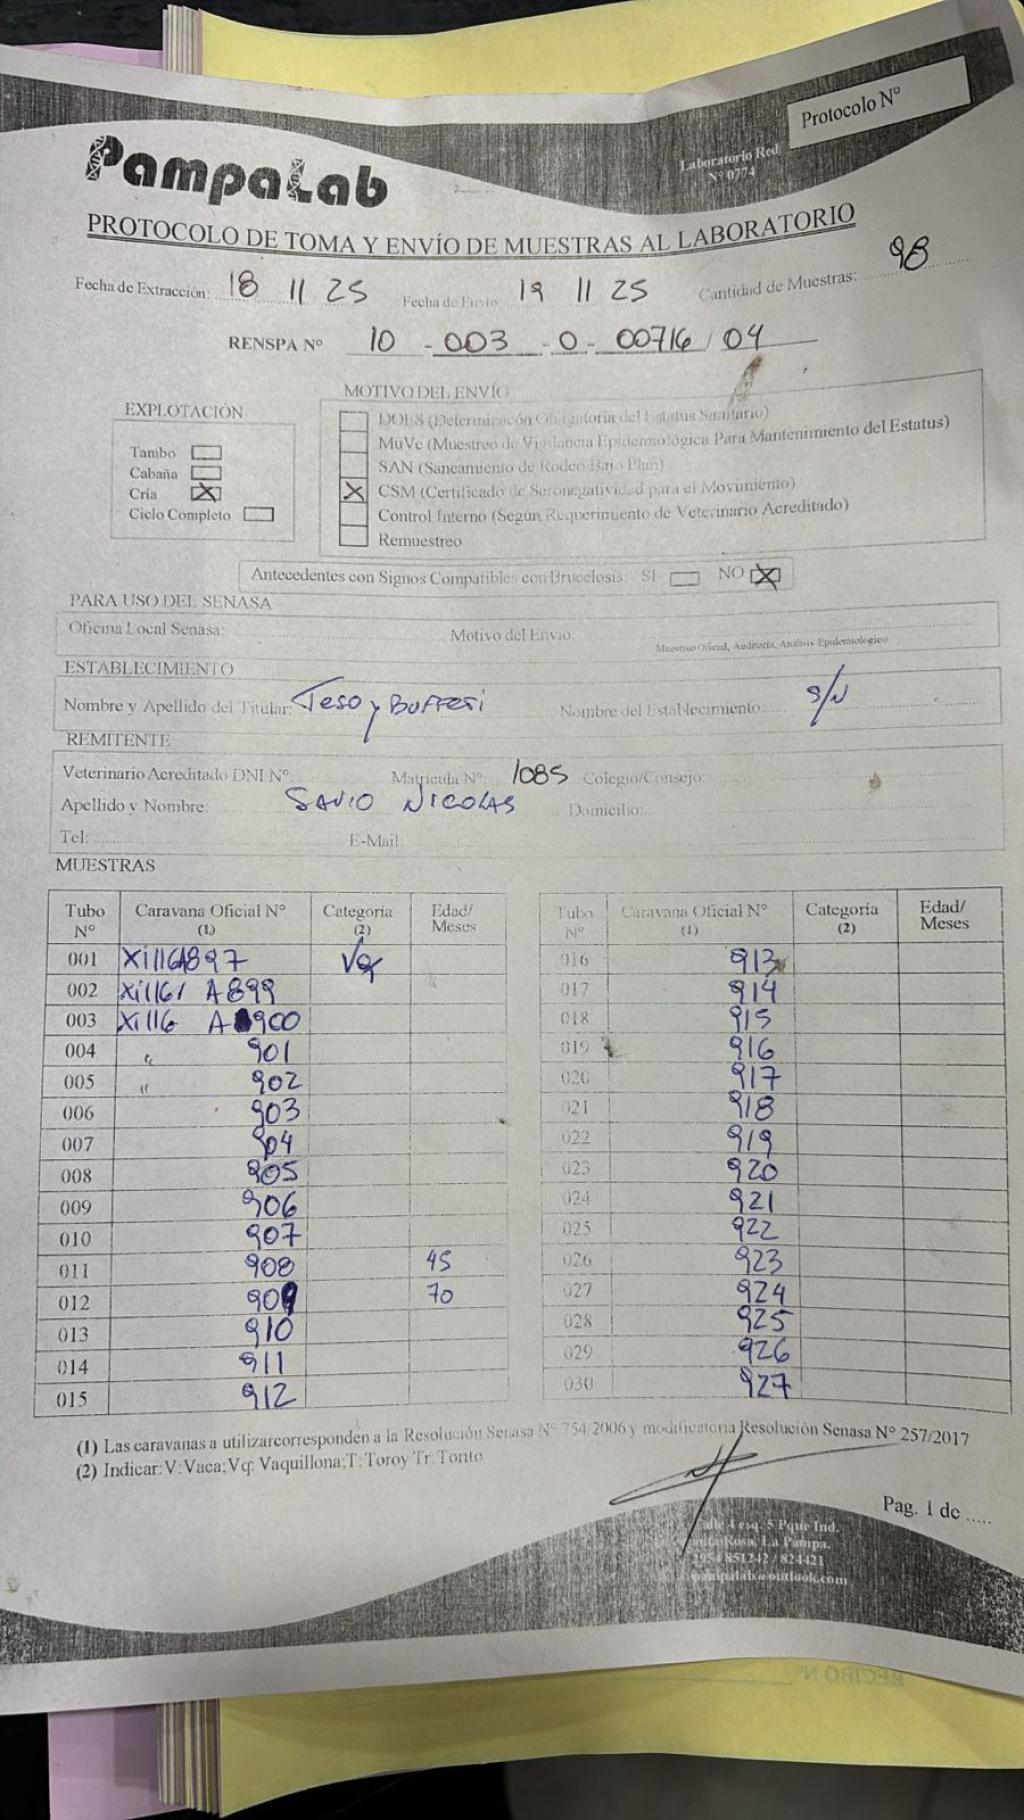 Protocolo N°
PampaLab
Laboratorio Red
N° 0774
PROTOCOLO DE TOMA Y ENVÍO DE MUESTRAS AL LABORATORIO
Fecha de Extracción: 18 11 25 Fecha de Envío: 19 11 25 Cantidad de Muestras: 98
RENSPA N° 10 - 003 - 0 - 00716 / 04
EXPLOTACIÓN
Tambo
Cabaña
Cria X
Ciclo Completo
MOTIVO DEL ENVÍO
DOES (Determinacón Obligatoria del Estatus Sanitario)
MuVe (Muestreo de Vigilancia Epidemiológica Para Mantenimiento del Estatus)
SAN (Saneamiento de Rodeo Bajo Plan)
X CSM (Certificado de Seronegatividad para el Movimiento)
Control Interno (Según Requerimiento de Veterinario Acreditado)
Remuestreo
Antecedentes con Signos Compatibles con Brucelosis: SI NO X
PARA USO DEL SENASA
Oficina Local Senasa: Motivo del Envío:
Muestreo Oficial, Auditoría, Análisis Epidemiológico
ESTABLECIMIENTO
Nombre y Apellido del Titular: Teso y Bufferi Nombre del Establecimiento: S/N
REMITENTE
Veterinario Acreditado DNI N° Matricula N°: 1085 Colegio/Consejo:
Apellido y Nombre: SAVIO NICOLAS Domicilio:
Tel: E-Mail:
MUESTRAS
Tubo N° Caravana Oficial N° (1) Categoría (2) Edad/ Meses
001 XI116A897 Vq
002 A899
003 XI116 A 900
004 " 901
005 " 902
006 903
007 904
008 905
009 906
010 907
011 908 45
012 909 70
013 910
014 911
015 912
Tubo N° Caravana Oficial N° (1) Categoría (2) Edad/ Meses
016 913
017 914
018 915
019 916
020 917
021 918
022 919
023 920
024 921
025 922
026 923
027 924
028 925
029 926
030 927
(1) Las caravanas a utilizarcorresponden a la Resolución Senasa N° 754/2006 y modificatoria Resolución Senasa N° 257/2017
(2) Indicar: V: Vaca; Vq: Vaquillona; T: Toro y Tr: Torito
Pag. 1 de .....
4 esq. 5 Pque Ind.
Rosa, La Pampa.
2954 851242 / 824421
pampalab@outlook.com
RECIBO N°